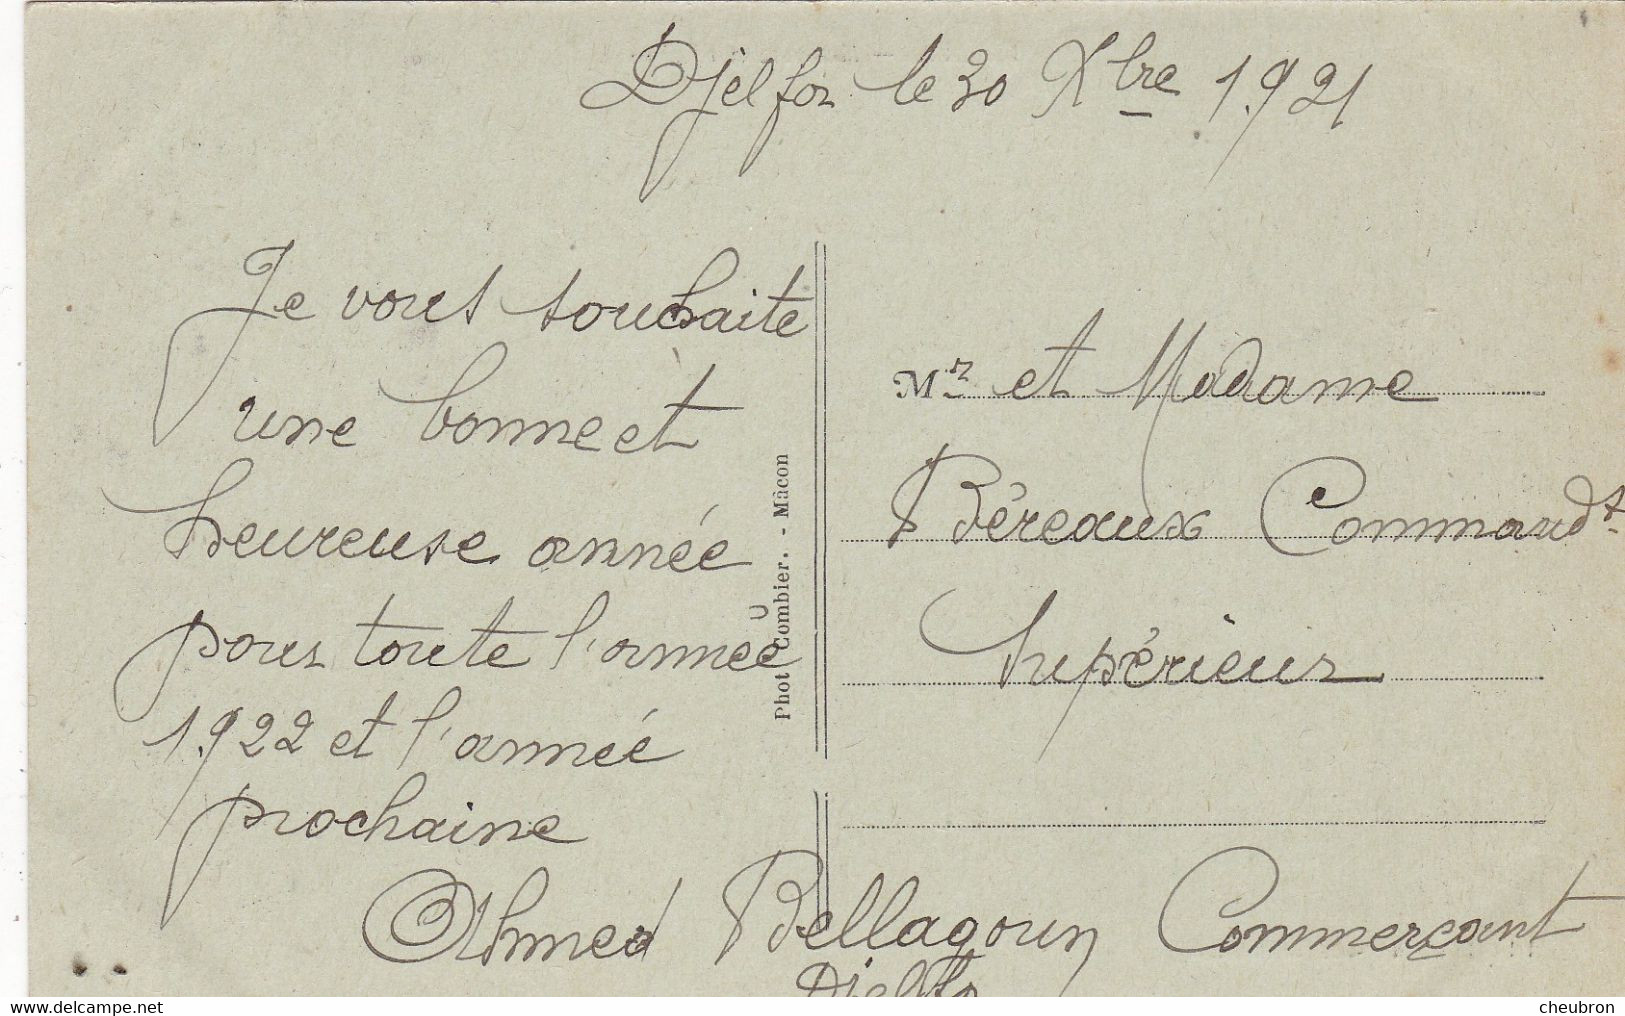 Djelfa le 30 Xbre 1921
Je vous souhaite
une bonne et
heureuse année
pour toute l'année
1922 et l'année
prochaine
Phot Combier. - Mâcon
Mr et Madame
Béreaux Commandt
Supérieur
Ahmed Bellagoun Commerçant
Djelfa
www.delcampe.net
cheubron